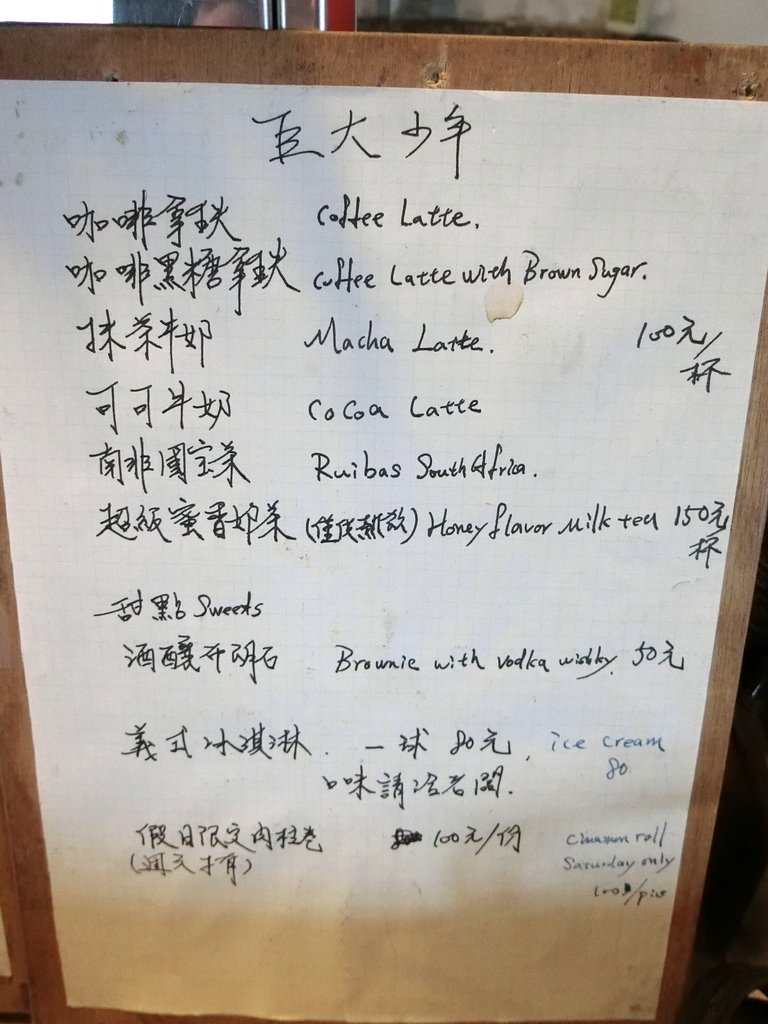 巨大少年
咖啡拿鐵 Coffee Latte.
咖啡黑糖拿鐵 Coffee Latte with Brown Sugar.
抹茶牛奶 Macha Latte. 100元/杯
可可牛奶 CoCoa Latte
南非國宝茶 Ruibas South Africa.
超級蜜香奶茶 (僅供熱飲) Honey flavor Milk tea 150元杯
甜點 Sweets
酒釀布朗石 Brownie with vodka wishky. 50元
義式冰淇淋. 一球 80元, ice cream 80
口味請洽老闆.
假日限定肉桂卷 100元/份 cinamon roll
(週六才有) Saturday only
100/pice